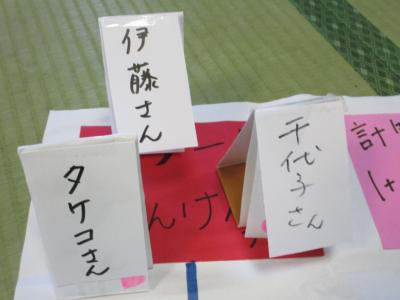 伊藤さん
タケコさん
千代子さん
ー
んけん
計
1+